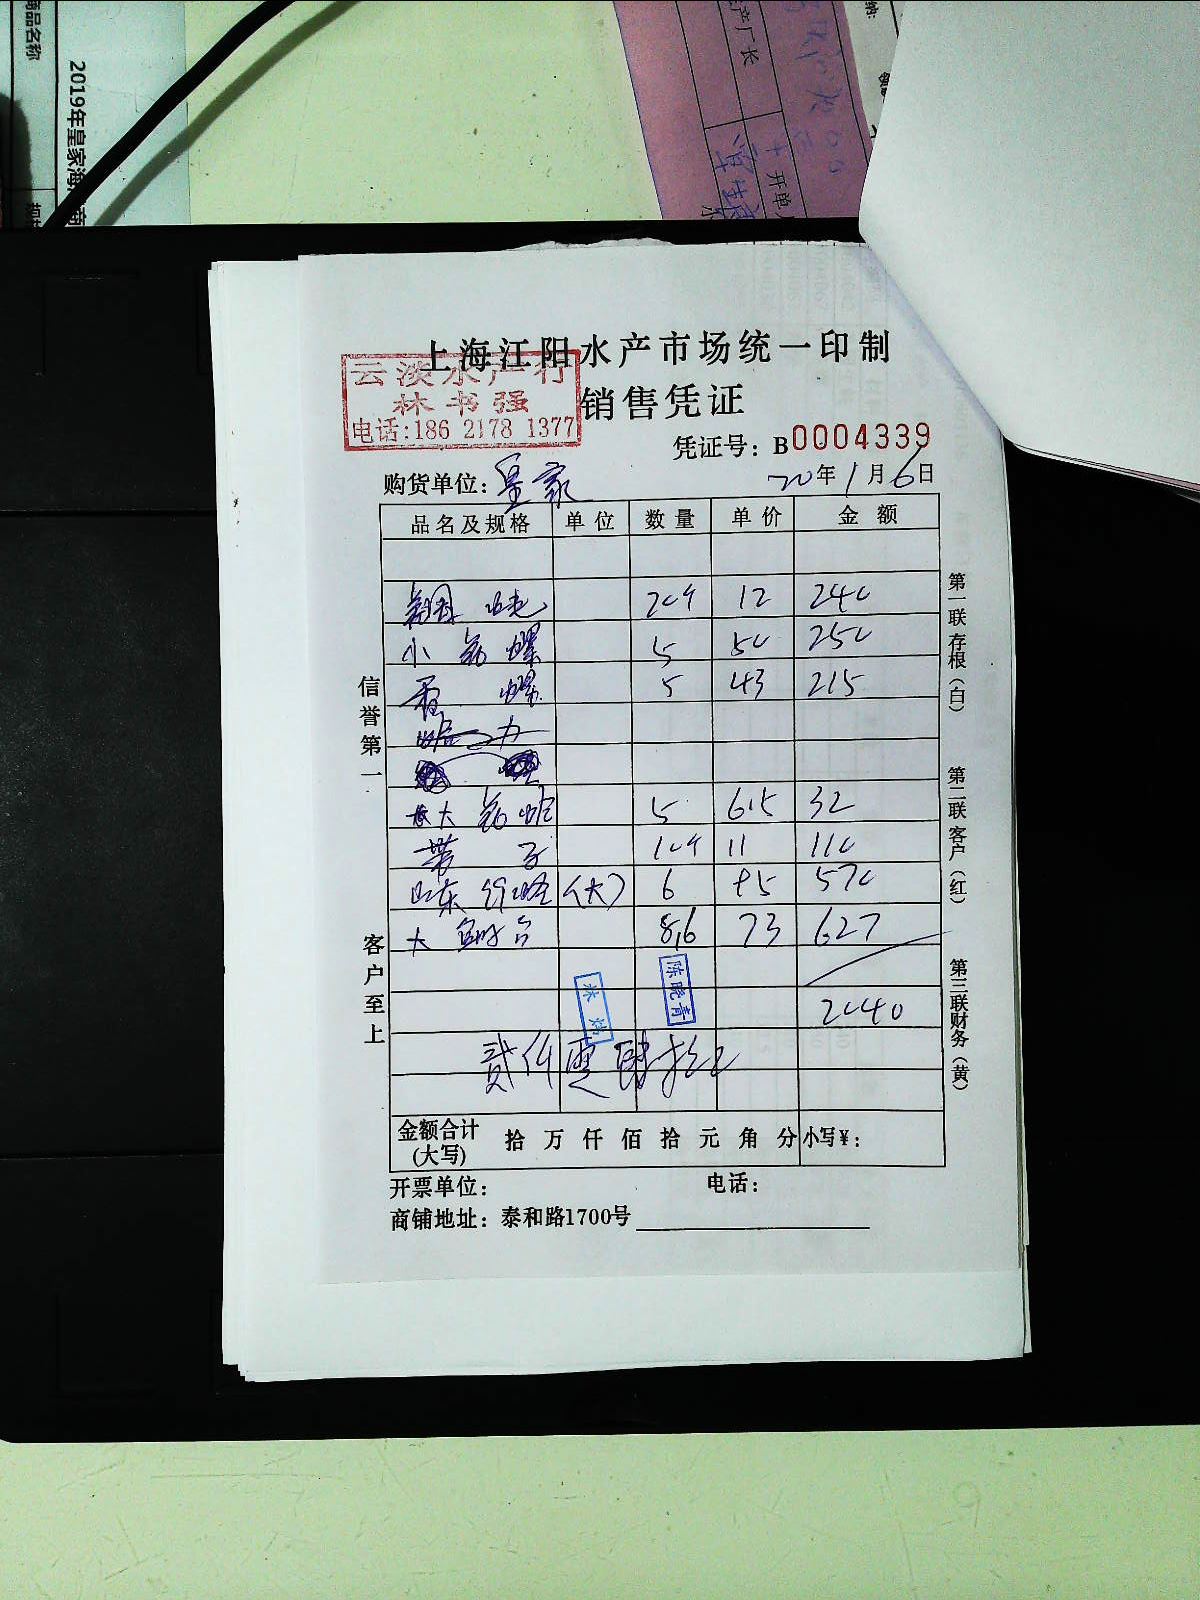 商品名称
2019年皇家海
产厂长
开单人
上海江阳水产市场统一印制
云淡水产行
林书强
电话:186 2178 1377
销售凭证
凭证号: B0004339
购货单位: 皇家 20年1月6日
品名及规格 单位 数量 单价 金额
20个 12 240
小 螺 5 50 250
香 螺 5 43 215
大 5 6.5 32
带 子 10个 11 110
山东 (大) 6 95 570
大 鲍 8.6 73 627
陈晓青
2040
贰仟零肆拾元
金额合计(大写) 拾 万 仟 佰 拾 元 角 分 小写¥:
开票单位: 电话:
商铺地址: 泰和路1700号
信誉第一
客户至上
第一联存根(白)
第二联客户(红)
第三联财务(黄)